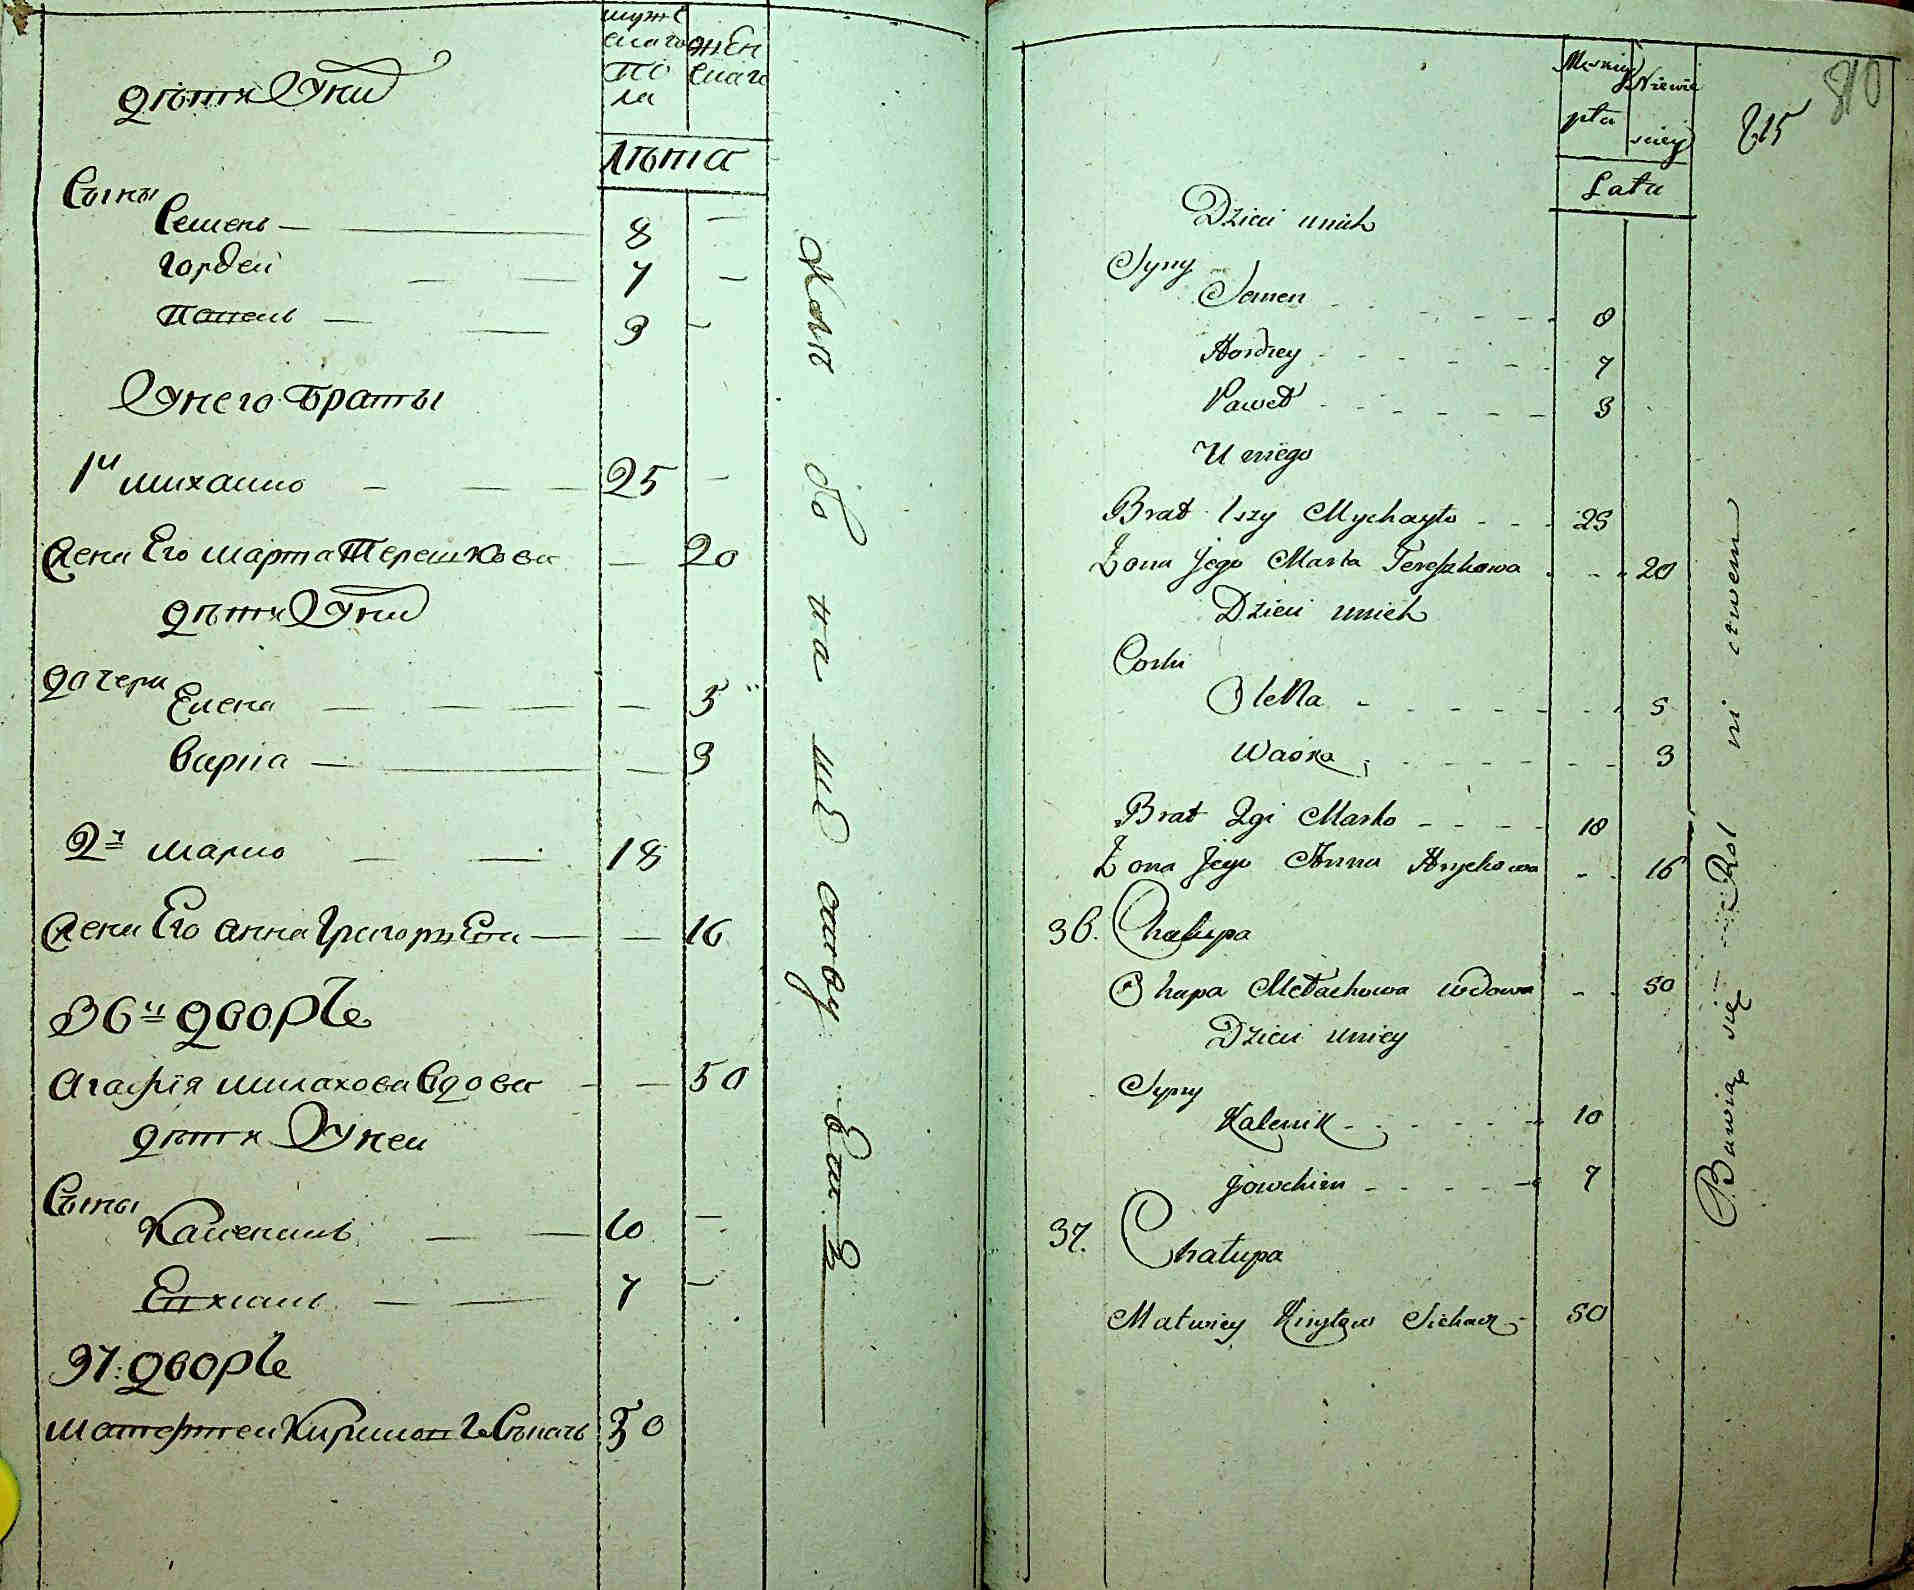 муже
скаго
по
ла
жен
скаго
Дѣти У них
Лѣта
Сыны
Семенъ — 8 —
Гордей — 7 —
Павелъ — 3 —
У него Браты
1й михайло — 25 —
Жена Его марта Терешкова — 20
Дѣти У них
Дочери
Елена — 5
варка — 3
2й марко — 18
Жена Его анна Григорьева — 16
36й Дворъ
Агафия милахова вдова — 50
Дѣти У ней
Сыны
Каленикъ — 10 —
Евхимъ — 7 —
37: Дворъ
матфей Кирилов Сѣкачъ 50
810
Męskiey
płci
Niewie
sciey
215
Lata
Dzieci u nich
Syny
Semen 8
Hordiey 7
Paweł 3
U niego
Brat 1szy Mychayło 25
Żona Jego Marta Tereszkowa 20
Dzieci u nich
Corki
Olena 5
Waśka 3
Brat 2gi Marko 18
Żona Jego Anna Hryćkowa 16
36. Chałupa
Ohapa Mełachowa wdowa 50
Dzieci u niey
Syny
Kalenik 10
Jowchim 7
37. Chałupa
Matwiey Kiryłow Sickacz 50
Bawią się Rol ni ctwem